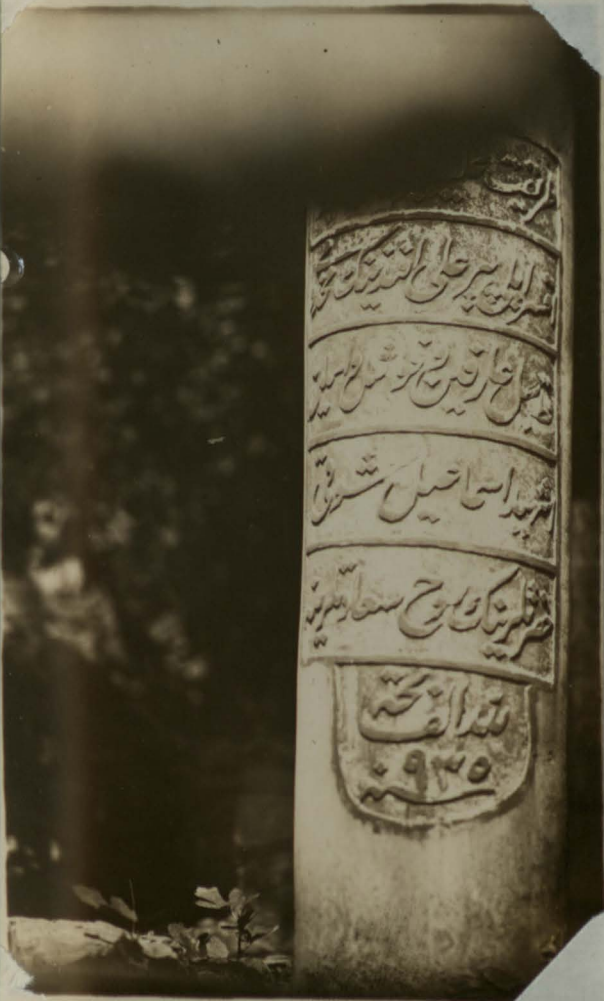 طریقت
سرایلی پیر علی افندینك
عارفین
شهید اسماعیل معشوقی
حضرتلرینك روح سعادتلرینه
لله الفاتحه
سنه ٩٣٥